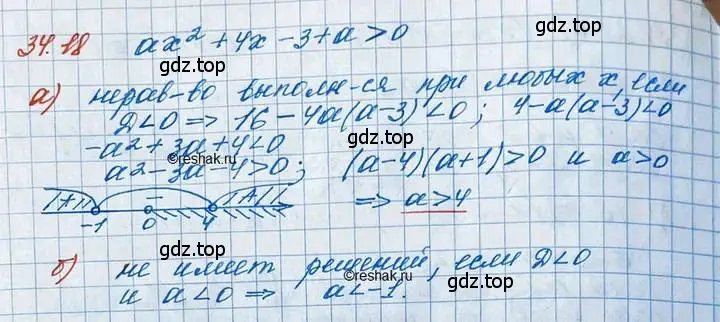 34.18 ax² + 4x - 3 + a > 0
gdz.top
а) нерав-во выполн-ся при любых x, если
gdz.top
D<0 => 16 - 4a(a-3) < 0; 4-a(a-3)<0
gdz.top
-a² + 3a + 4 < 0
©reshak.ru
a² - 3a - 4 > 0; (a-4)(a+1) > 0 и a>0
gdz.top
+ - +
-1 0 4 => a>4
gdz.top
б) не имеет решений, если D<0
©reshak.ru
и a<0 => a<-1.
gdz.top